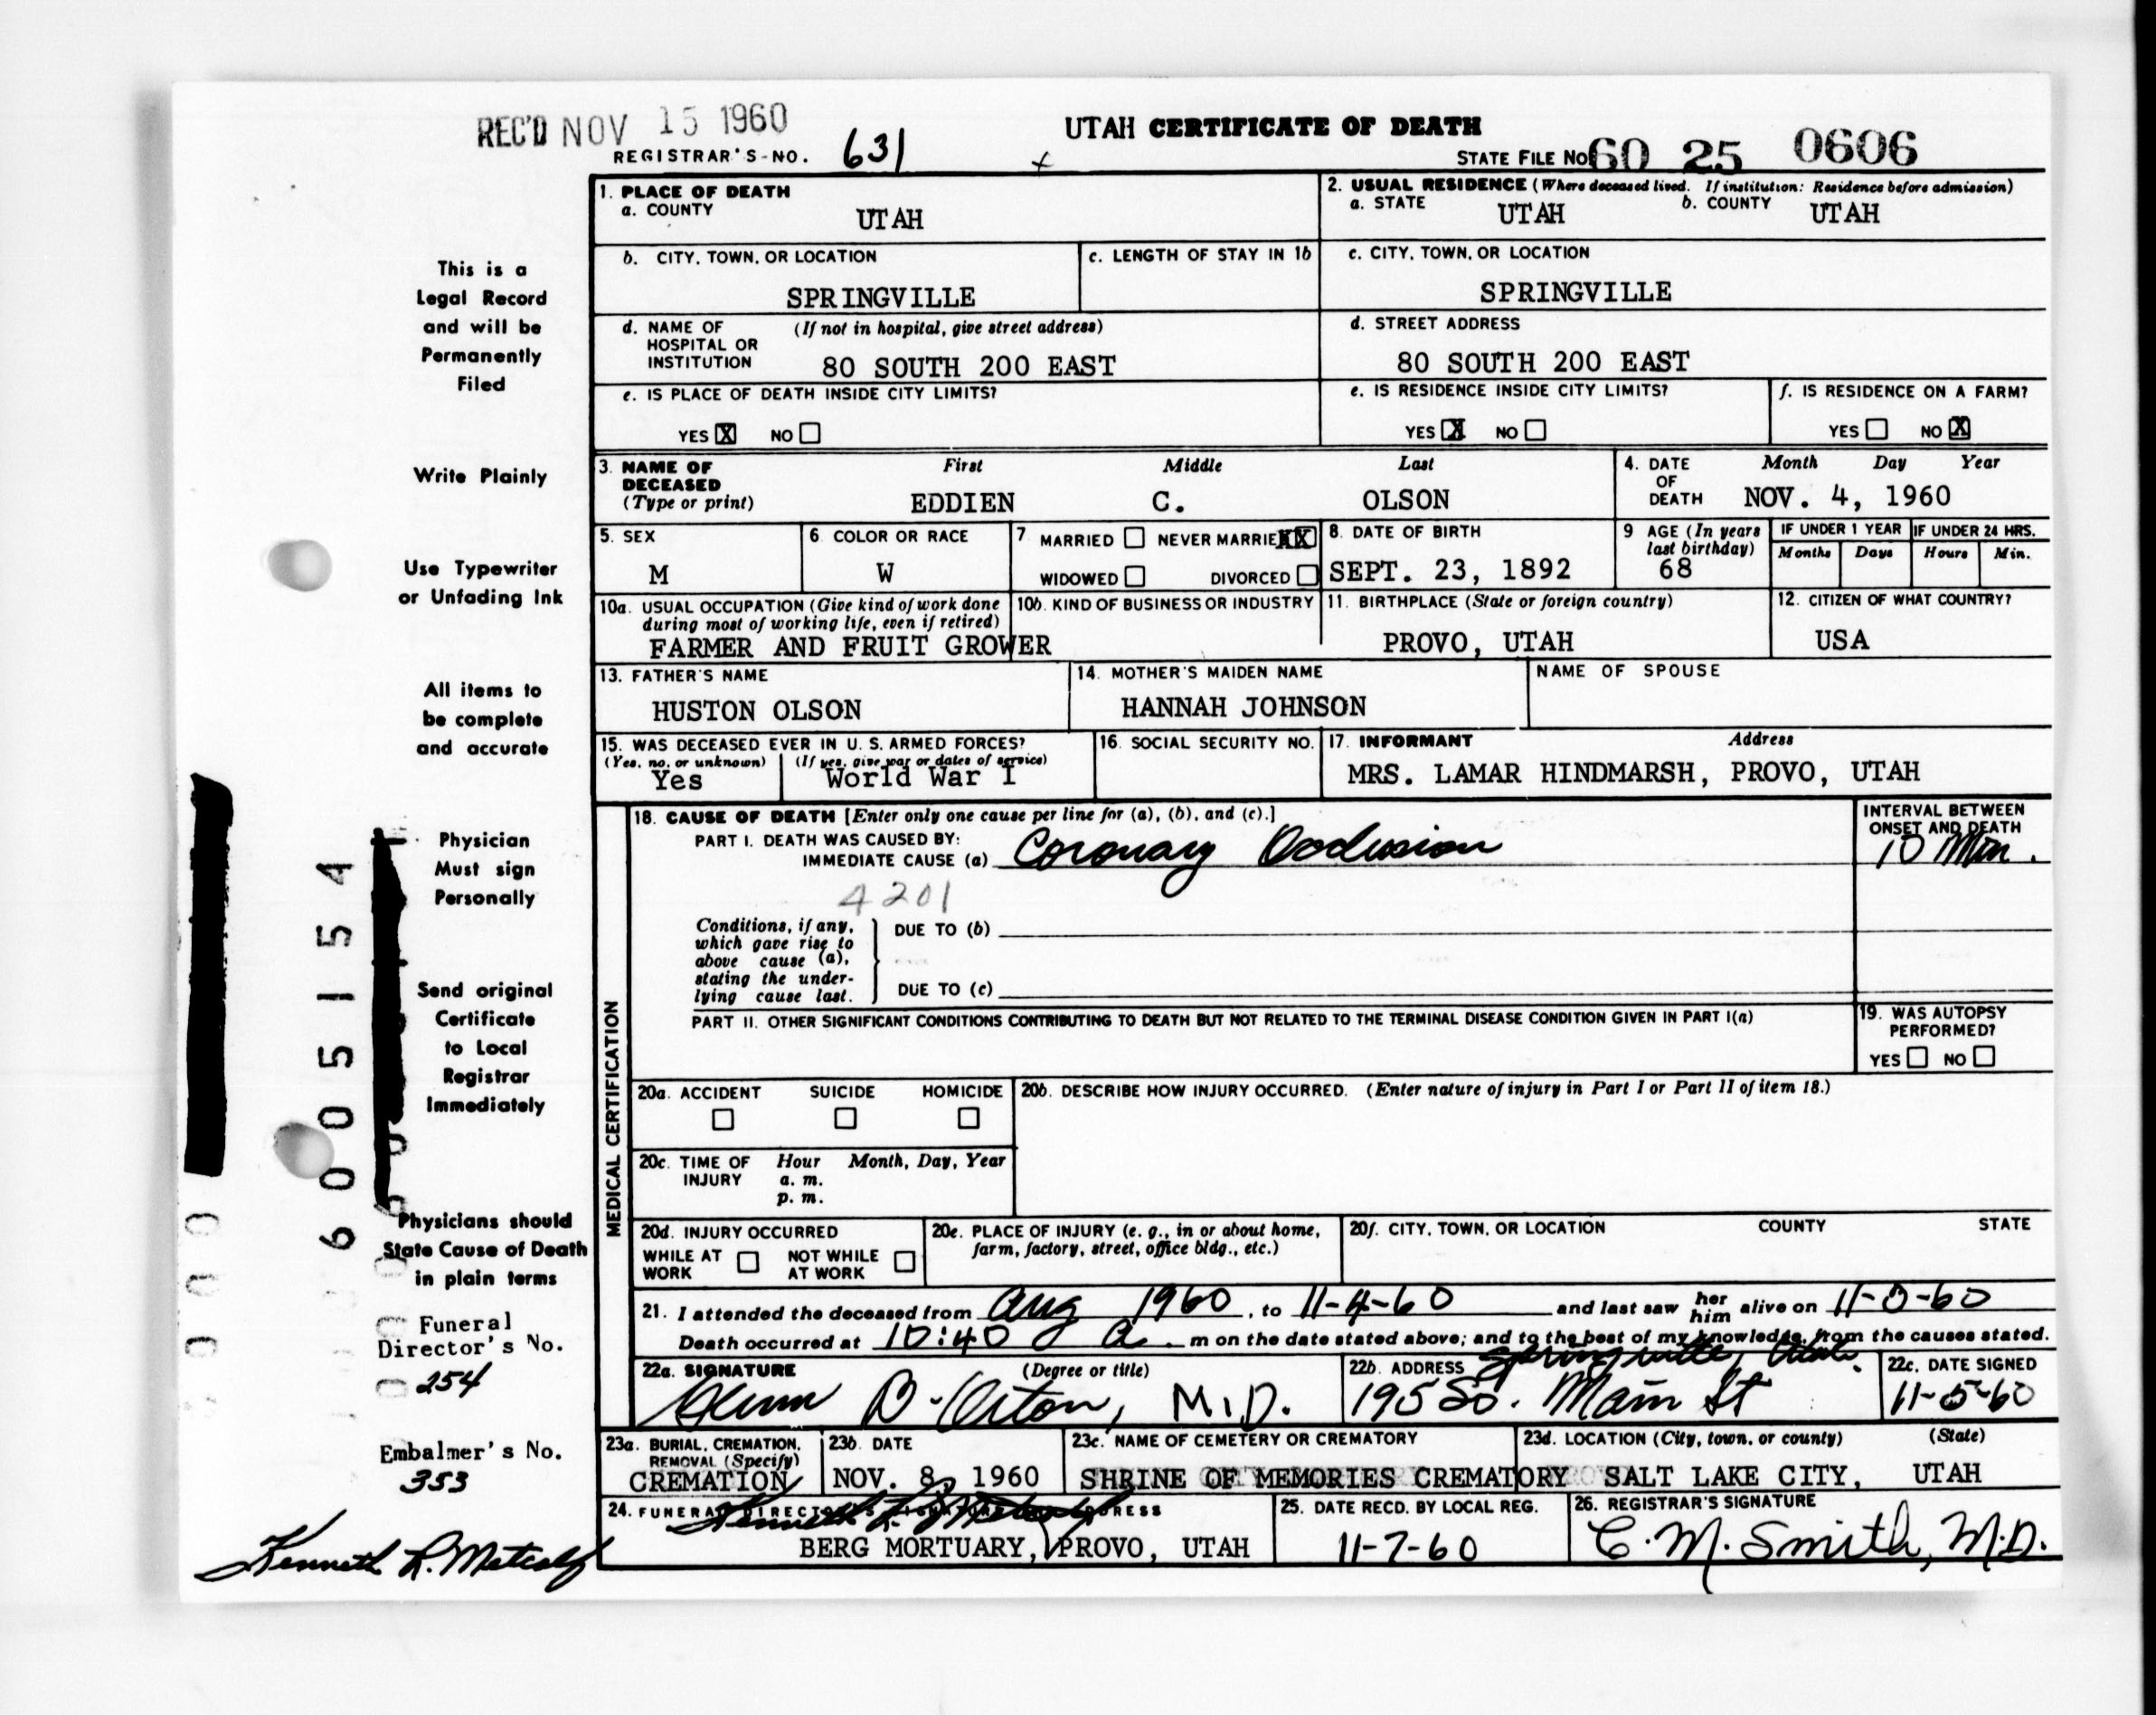 REC'D NOV 15 1960
UTAH CERTIFICATE OF DEATH
REGISTRAR'S-NO. 631
STATE FILE NO. 60 25 0606
1. PLACE OF DEATH
a. COUNTY
UTAH
2. USUAL RESIDENCE (Where deceased lived. If institution: Residence before admission)
a. STATE UTAH b. COUNTY UTAH
b. CITY, TOWN, OR LOCATION
SPRINGVILLE
c. LENGTH OF STAY IN 1b
c. CITY, TOWN, OR LOCATION
SPRINGVILLE
d. NAME OF HOSPITAL OR INSTITUTION (If not in hospital, give street address)
80 SOUTH 200 EAST
d. STREET ADDRESS
80 SOUTH 200 EAST
e. IS PLACE OF DEATH INSIDE CITY LIMITS?
YES X NO
e. IS RESIDENCE INSIDE CITY LIMITS?
YES X NO
f. IS RESIDENCE ON A FARM?
YES NO X
3. NAME OF DECEASED (Type or print)
First Middle Last
EDDIEN C. OLSON
4. DATE OF DEATH
Month Day Year
NOV. 4, 1960
5. SEX
M
6. COLOR OR RACE
W
7 MARRIED NEVER MARRIED XX
WIDOWED DIVORCED
8. DATE OF BIRTH
SEPT. 23, 1892
9 AGE (In years last birthday)
68
IF UNDER 1 YEAR
Months Days
IF UNDER 24 HRS.
Hours Min.
10a. USUAL OCCUPATION (Give kind of work done during most of working life, even if retired)
FARMER AND FRUIT GROWER
10b. KIND OF BUSINESS OR INDUSTRY
11. BIRTHPLACE (State or foreign country)
PROVO, UTAH
12. CITIZEN OF WHAT COUNTRY?
USA
13. FATHER'S NAME
HUSTON OLSON
14. MOTHER'S MAIDEN NAME
HANNAH JOHNSON
NAME OF SPOUSE
15. WAS DECEASED EVER IN U. S. ARMED FORCES?
(Yes, no, or unknown) (If yes, give war or dates of service)
Yes World War I
16. SOCIAL SECURITY NO.
17. INFORMANT Address
MRS. LAMAR HINDMARSH, PROVO, UTAH
MEDICAL CERTIFICATION
18. CAUSE OF DEATH [Enter only one cause per line for (a), (b), and (c).]
PART I. DEATH WAS CAUSED BY:
IMMEDIATE CAUSE (a) Coronary Occlusion
INTERVAL BETWEEN ONSET AND DEATH
10 Min.
4201
Conditions, if any, which gave rise to above cause (a), stating the underlying cause last.
DUE TO (b)
DUE TO (c)
PART II. OTHER SIGNIFICANT CONDITIONS CONTRIBUTING TO DEATH BUT NOT RELATED TO THE TERMINAL DISEASE CONDITION GIVEN IN PART I(a)
19. WAS AUTOPSY PERFORMED?
YES NO
20a. ACCIDENT SUICIDE HOMICIDE
20b. DESCRIBE HOW INJURY OCCURRED. (Enter nature of injury in Part I or Part II of item 18.)
20c. TIME OF INJURY Hour Month, Day, Year
a. m.
p. m.
20d. INJURY OCCURRED
WHILE AT WORK NOT WHILE AT WORK
20e. PLACE OF INJURY (e. g., in or about home, farm, factory, street, office bldg., etc.)
20f. CITY, TOWN, OR LOCATION COUNTY STATE
21. I attended the deceased from Aug 1960, to 11-4-60 and last saw her him alive on 11-0-60
Death occurred at 10:40 a. m on the date stated above; and to the best of my knowledge, from the causes stated.
22a. SIGNATURE (Degree or title)
Orton, M.D.
22b. ADDRESS Springville, Utah.
195 So. Main St
22c. DATE SIGNED
11-5-60
23a. BURIAL, CREMATION, REMOVAL (Specify)
CREMATION
23b. DATE
NOV. 8, 1960
23c. NAME OF CEMETERY OR CREMATORY
SHRINE OF MEMORIES CREMATORY
23d. LOCATION (City, town, or county) (State)
SALT LAKE CITY, UTAH
24. FUNERAL DIRECTOR'S SIGNATURE ADDRESS
Kenneth L. Metcalf
BERG MORTUARY, PROVO, UTAH
25. DATE RECD. BY LOCAL REG.
11-7-60
26. REGISTRAR'S SIGNATURE
C. M. Smith, M.D.
This is a
Legal Record
and will be
Permanently
Filed
Write Plainly
Use Typewriter
or Unfading Ink
All items to
be complete
and accurate
Physician
Must sign
Personally
Send original
Certificate
to Local
Registrar
Immediately
Physicians should
State Cause of Death
in plain terms
Funeral
Director's No.
254
Embalmer's No.
353
Kenneth L. Metcalf
6005154